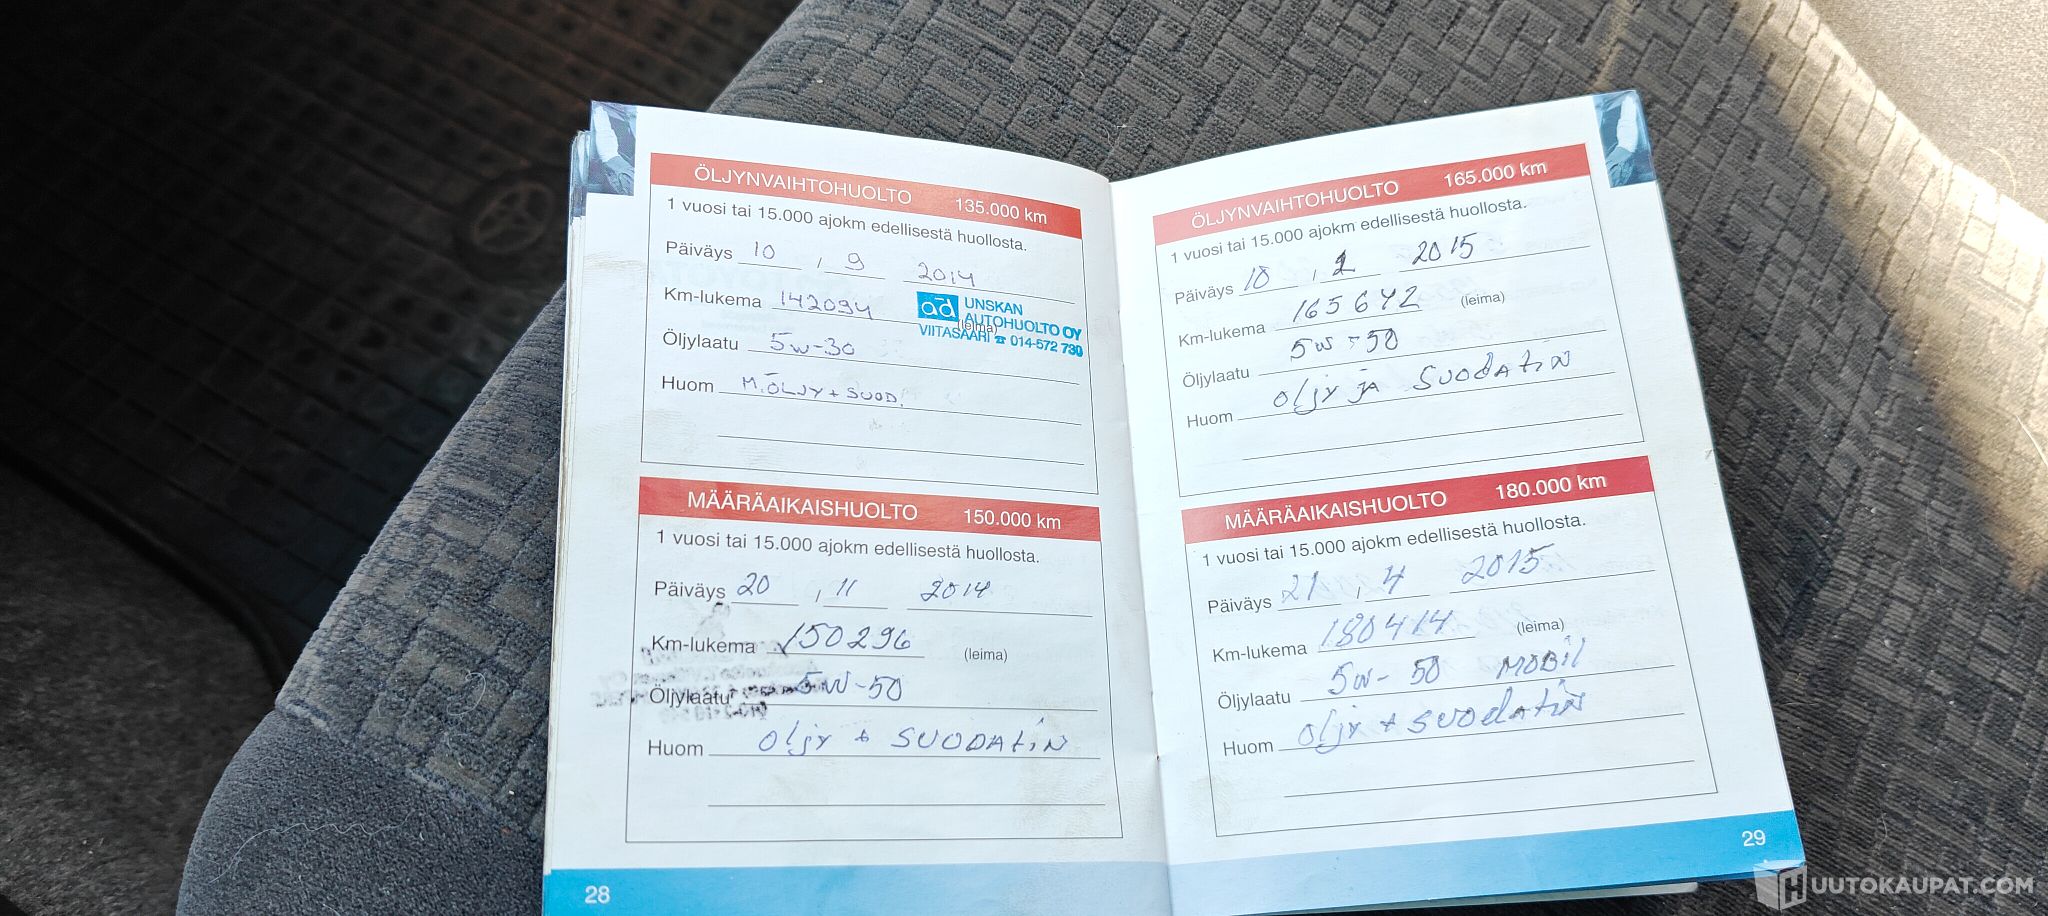 ÖLJYNVAIHTOHUOLTO 135.000 km
1 vuosi tai 15.000 ajokm edellisestä huollosta.
Päiväys 10 , 9 2014
Km-lukema 142094
(leima)
ad UNSKAN
AUTOHUOLTO OY
VIITASAARI ☎ 014-572 730
Öljylaatu 5W-30
Huom M.ÖLJY + SUOD.
MÄÄRÄAIKAISHUOLTO 150.000 km
1 vuosi tai 15.000 ajokm edellisestä huollosta.
Päiväys 20 , 11 2014
Km-lukema 150296 (leima)
Öljylaatu 5W-50
Huom Öljy + SUODATIN
28
ÖLJYNVAIHTOHUOLTO 165.000 km
1 vuosi tai 15.000 ajokm edellisestä huollosta.
Päiväys 10 , 2 2015
Km-lukema 165642 (leima)
Öljylaatu 5W-50
Huom Öljy ja SUODATIN
MÄÄRÄAIKAISHUOLTO 180.000 km
1 vuosi tai 15.000 ajokm edellisestä huollosta.
Päiväys 21 , 4 2015
Km-lukema 180414 (leima)
Öljylaatu 5W-50 MOBIL
Huom Öljy + SUODATIN
29
HUUTOKAUPAT.COM